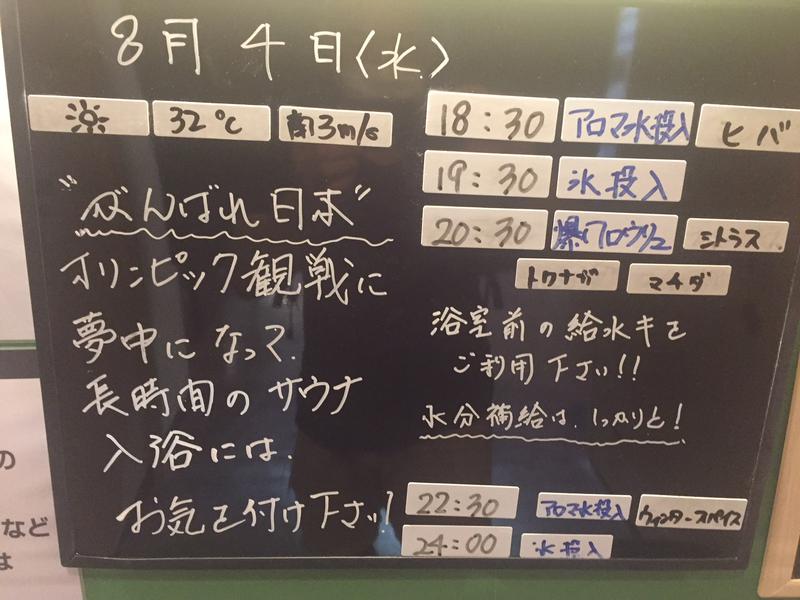 8月4日(水)
32℃
南3m/s
"がんばれ日本"
オリンピック観戦に
夢中になって、
長時間のサウナ
入浴には、
お気を付け下さい!
18:30 アロマ水投入 ヒバ
19:30 氷投入
20:30 爆アロウリュ シトラス
トクナガ マチダ
浴室前の給水キを
ご利用下さい!!
水分補給は、しっかりと!
22:30 アロマ水投入 ウィンタースパイス
24:00 氷投入
の
など
は